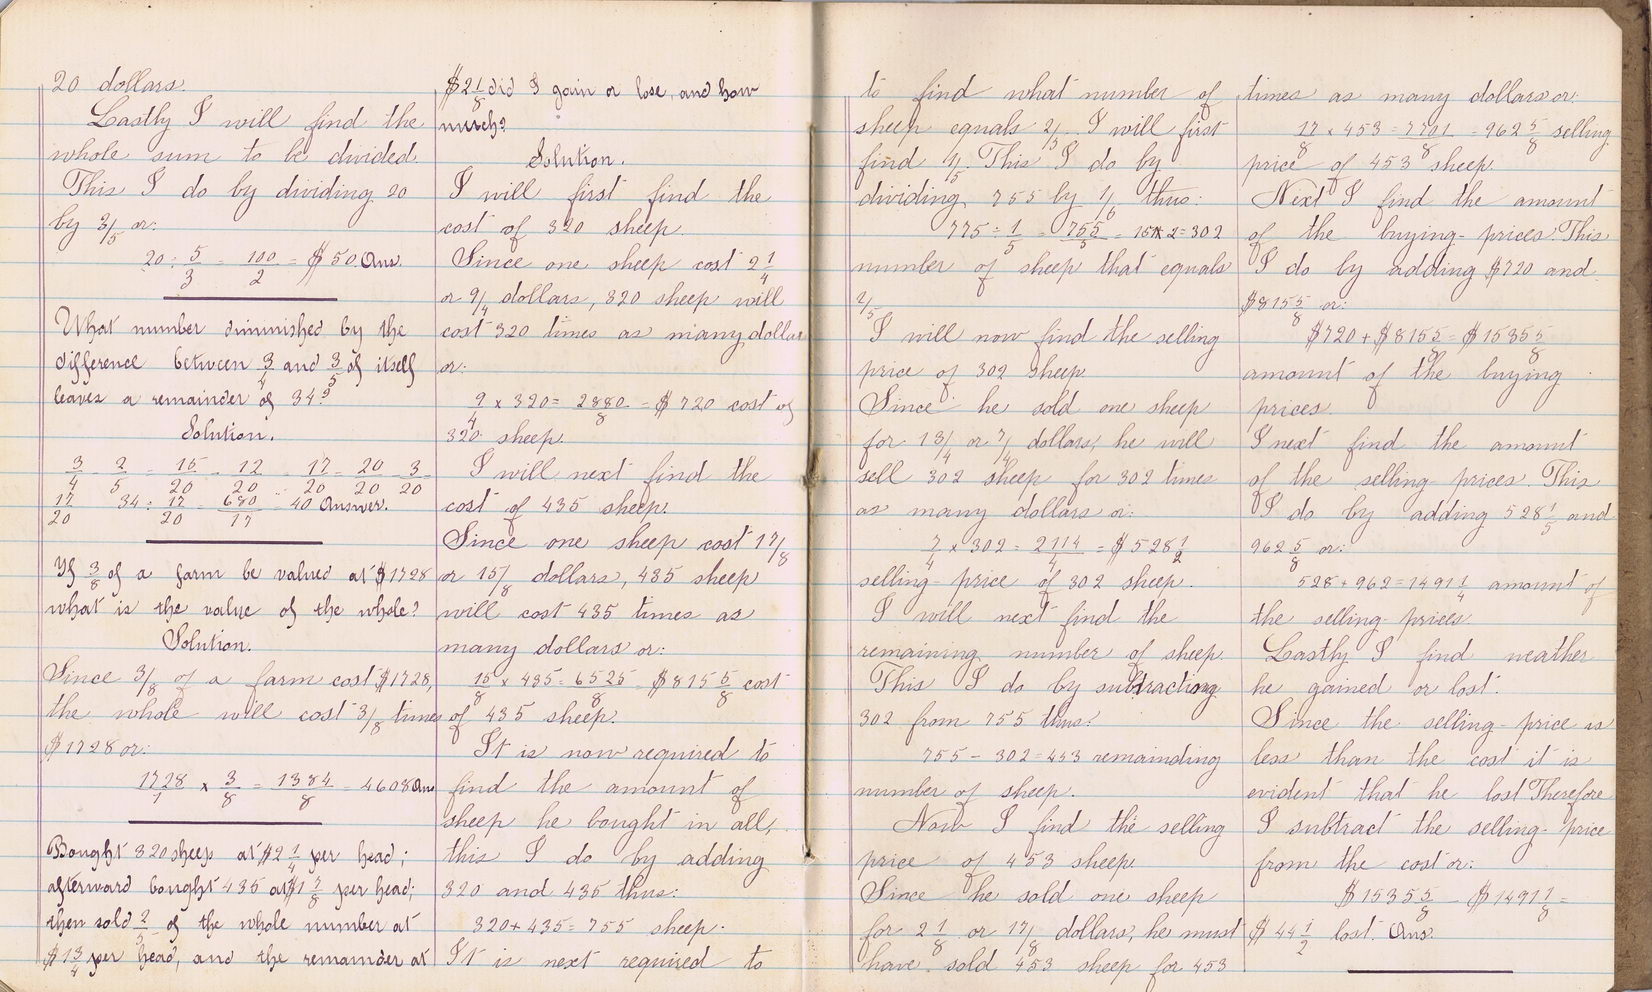 20 dollars.
Lastly I will find the
whole sum to be divided.
This I do by dividing 20
by 3/5 or:
20 ÷ 5/3 = 100/2 = $50 Ans.
What number diminished by the
difference between 3/4 and 3/5 of itself
leaves a remainder of 34?
Solution.
3/4 - 2/5 = 15/20 - 12/20 = 17 = 20/20 - 3/20
17/20 34 ÷ 17/20 = 680/17 = 40 Answer.
If 3/8 of a farm be valued at $1728
what is the value of the whole?
Solution.
Since 3/8 of a farm cost $1728,
the whole will cost 3/8 times
$1728 or:
1728/1 × 3/8 = 1384/8 = 4608 Ans
Bought 320 sheep at $2 1/4 per head;
afterward bought 435 at $1 7/8 per head;
then sold 2/5 of the whole number at
$1 3/4 per head, and the remainder at
$2 1/8 did I gain or lose, and how
much?
Solution.
I will first find the
cost of 320 sheep.
Since one sheep cost 2 1/4
or 9/4 dollars, 320 sheep will
cost 320 times as many dollars
or:
9/4 × 320 = 2880/8 = $720 cost of
320 sheep.
I will next find the
cost of 435 sheep.
Since one sheep cost 1 7/8
or 15/8 dollars, 435 sheep
will cost 435 times as
many dollars or:
15/8 × 435 = 6525/8 = $815 5/8 cost
of 435 sheep.
It is now required to
find the amount of
sheep he bought in all,
this I do by adding
320 and 435 thus:
320 + 435 = 755 sheep.
It is next required to
to find what number of
sheep equals 2/5. I will first
find 1/5. This I do by
dividing 755 by 1/6 thus:
775 ÷ 1/5 = 755/5 = 151 × 2 = 302
number of sheep that equals
2/5
I will now find the selling
price of 302 sheep
Since he sold one sheep
for 1 3/4 or 7/4 dollars, he will
sell 302 sheep for 302 times
as many dollars or:
7/4 × 302 = 2114/4 = $528 1/2
selling-price of 302 sheep.
I will next find the
remaining number of sheep.
This I do by subtracting
302 from 755 thus:
755 - 302 = 453 remainding
number of sheep.
Now I find the selling
price of 453 sheep.
Since he sold one sheep
for 2 1/8 or 17/8 dollars, he must
have sold 453 sheep for 453
times as many dollars or:
17/8 × 453 = 7701/8 = 962 5/8 selling
price of 453 sheep.
Next I find the amount
of the buying-prices. This
I do by adding $720 and
$815 5/8 or:
$720 + $815 5/8 = $1535 5/8
amount of the buying
prices.
I next find the amount
of the selling-prices. This
I do by adding 528 1/5 and
962 5/8 or:
528 + 962 = 1491 1/4 amount of
the selling-prices.
Lastly I find weather
he gained or lost.
Since the selling-price is
less than the cost it is
evident that he lost Therefore
I subtract the selling-price
from the cost or:
$1535 5/8 - $1491 1/8 =
$44 1/2 lost. Ans.